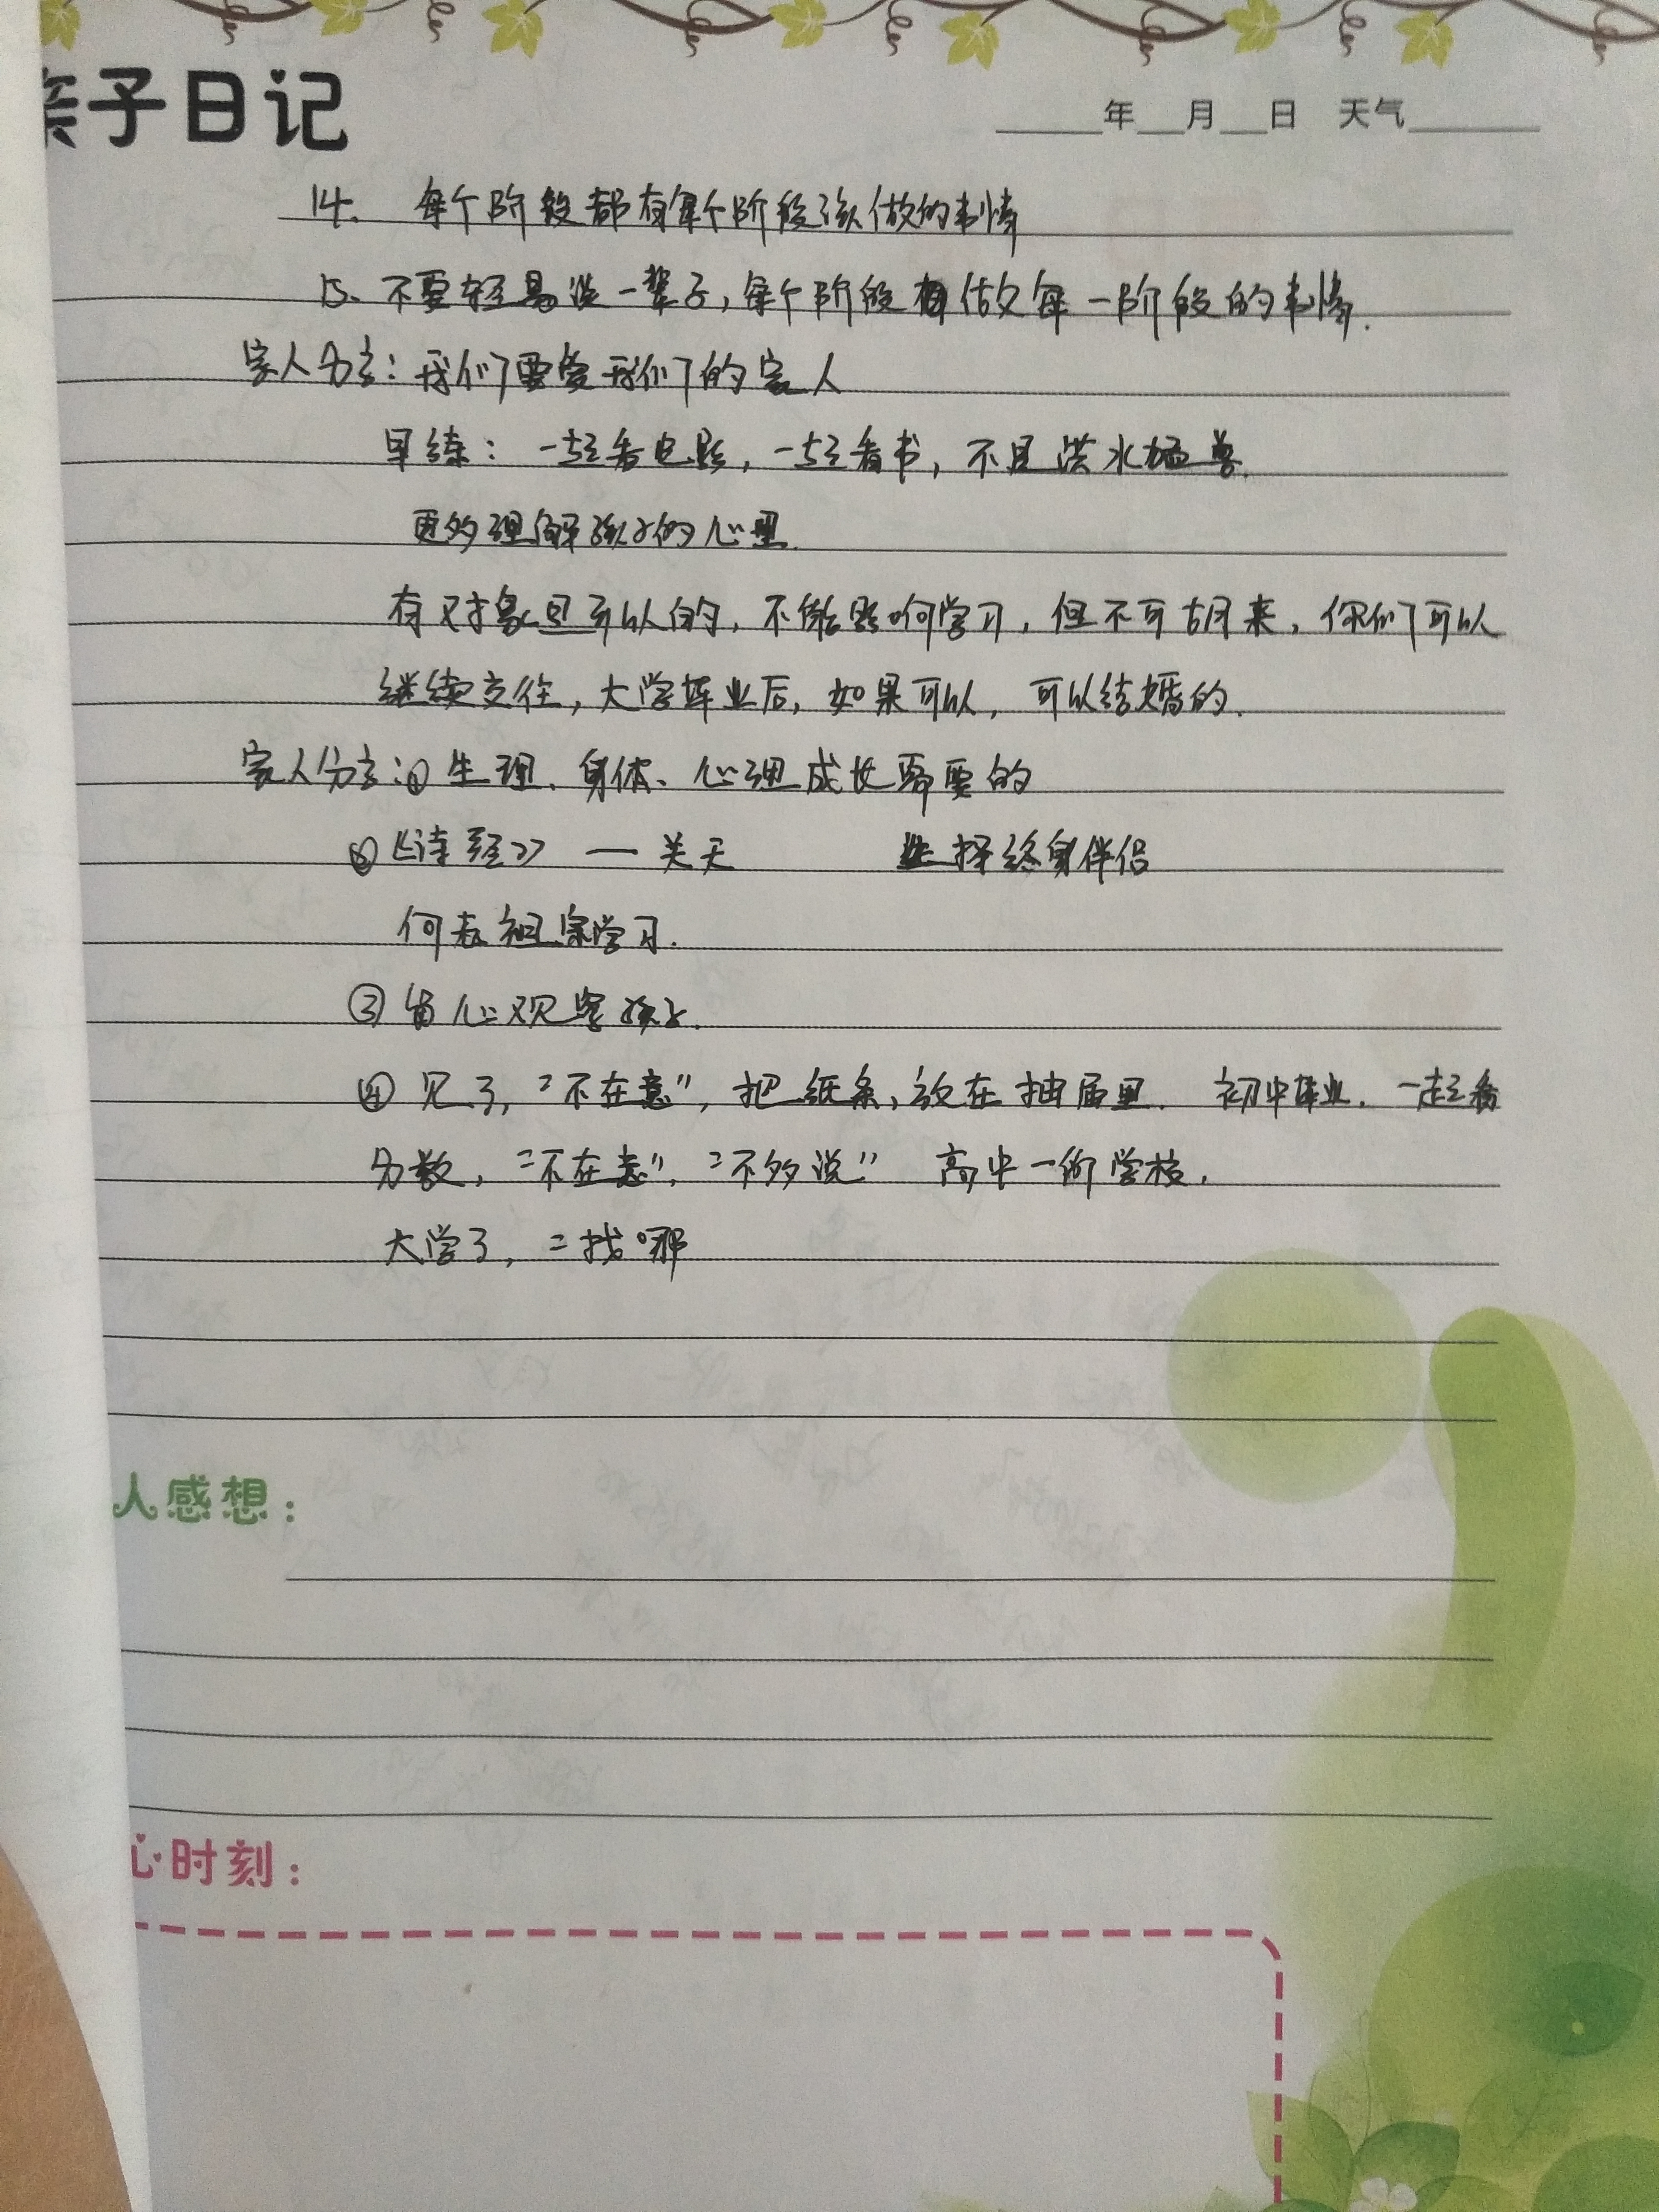 亲子日记
年 月 日 天气
14. 每个阶段都有每个阶段该做的事情
15. 不要轻易说一辈子,每个阶段有做好每一阶段的事情.
家人分享:我们要爱我们的家人
早练:一起看电影,一起看书,不是洪水猛兽.
更多理解孩子的心里.
有对象是可以的,不能影响学习,但不可胡来,你们可以
继续交往,大学毕业后,如果可以,可以结婚的.
家人分享:① 生理、身体、心理成长需要的
②《诗经》 — 关 选择终身伴侣
向老祖宗学习.
③ 留心观察孩子.
④ 见了,"不在意",把纸条,放在抽屉里. 初中毕业,一起看
分数,"不在意","不多说" 高中一个学校.
大学了,
人感想:
心时刻: